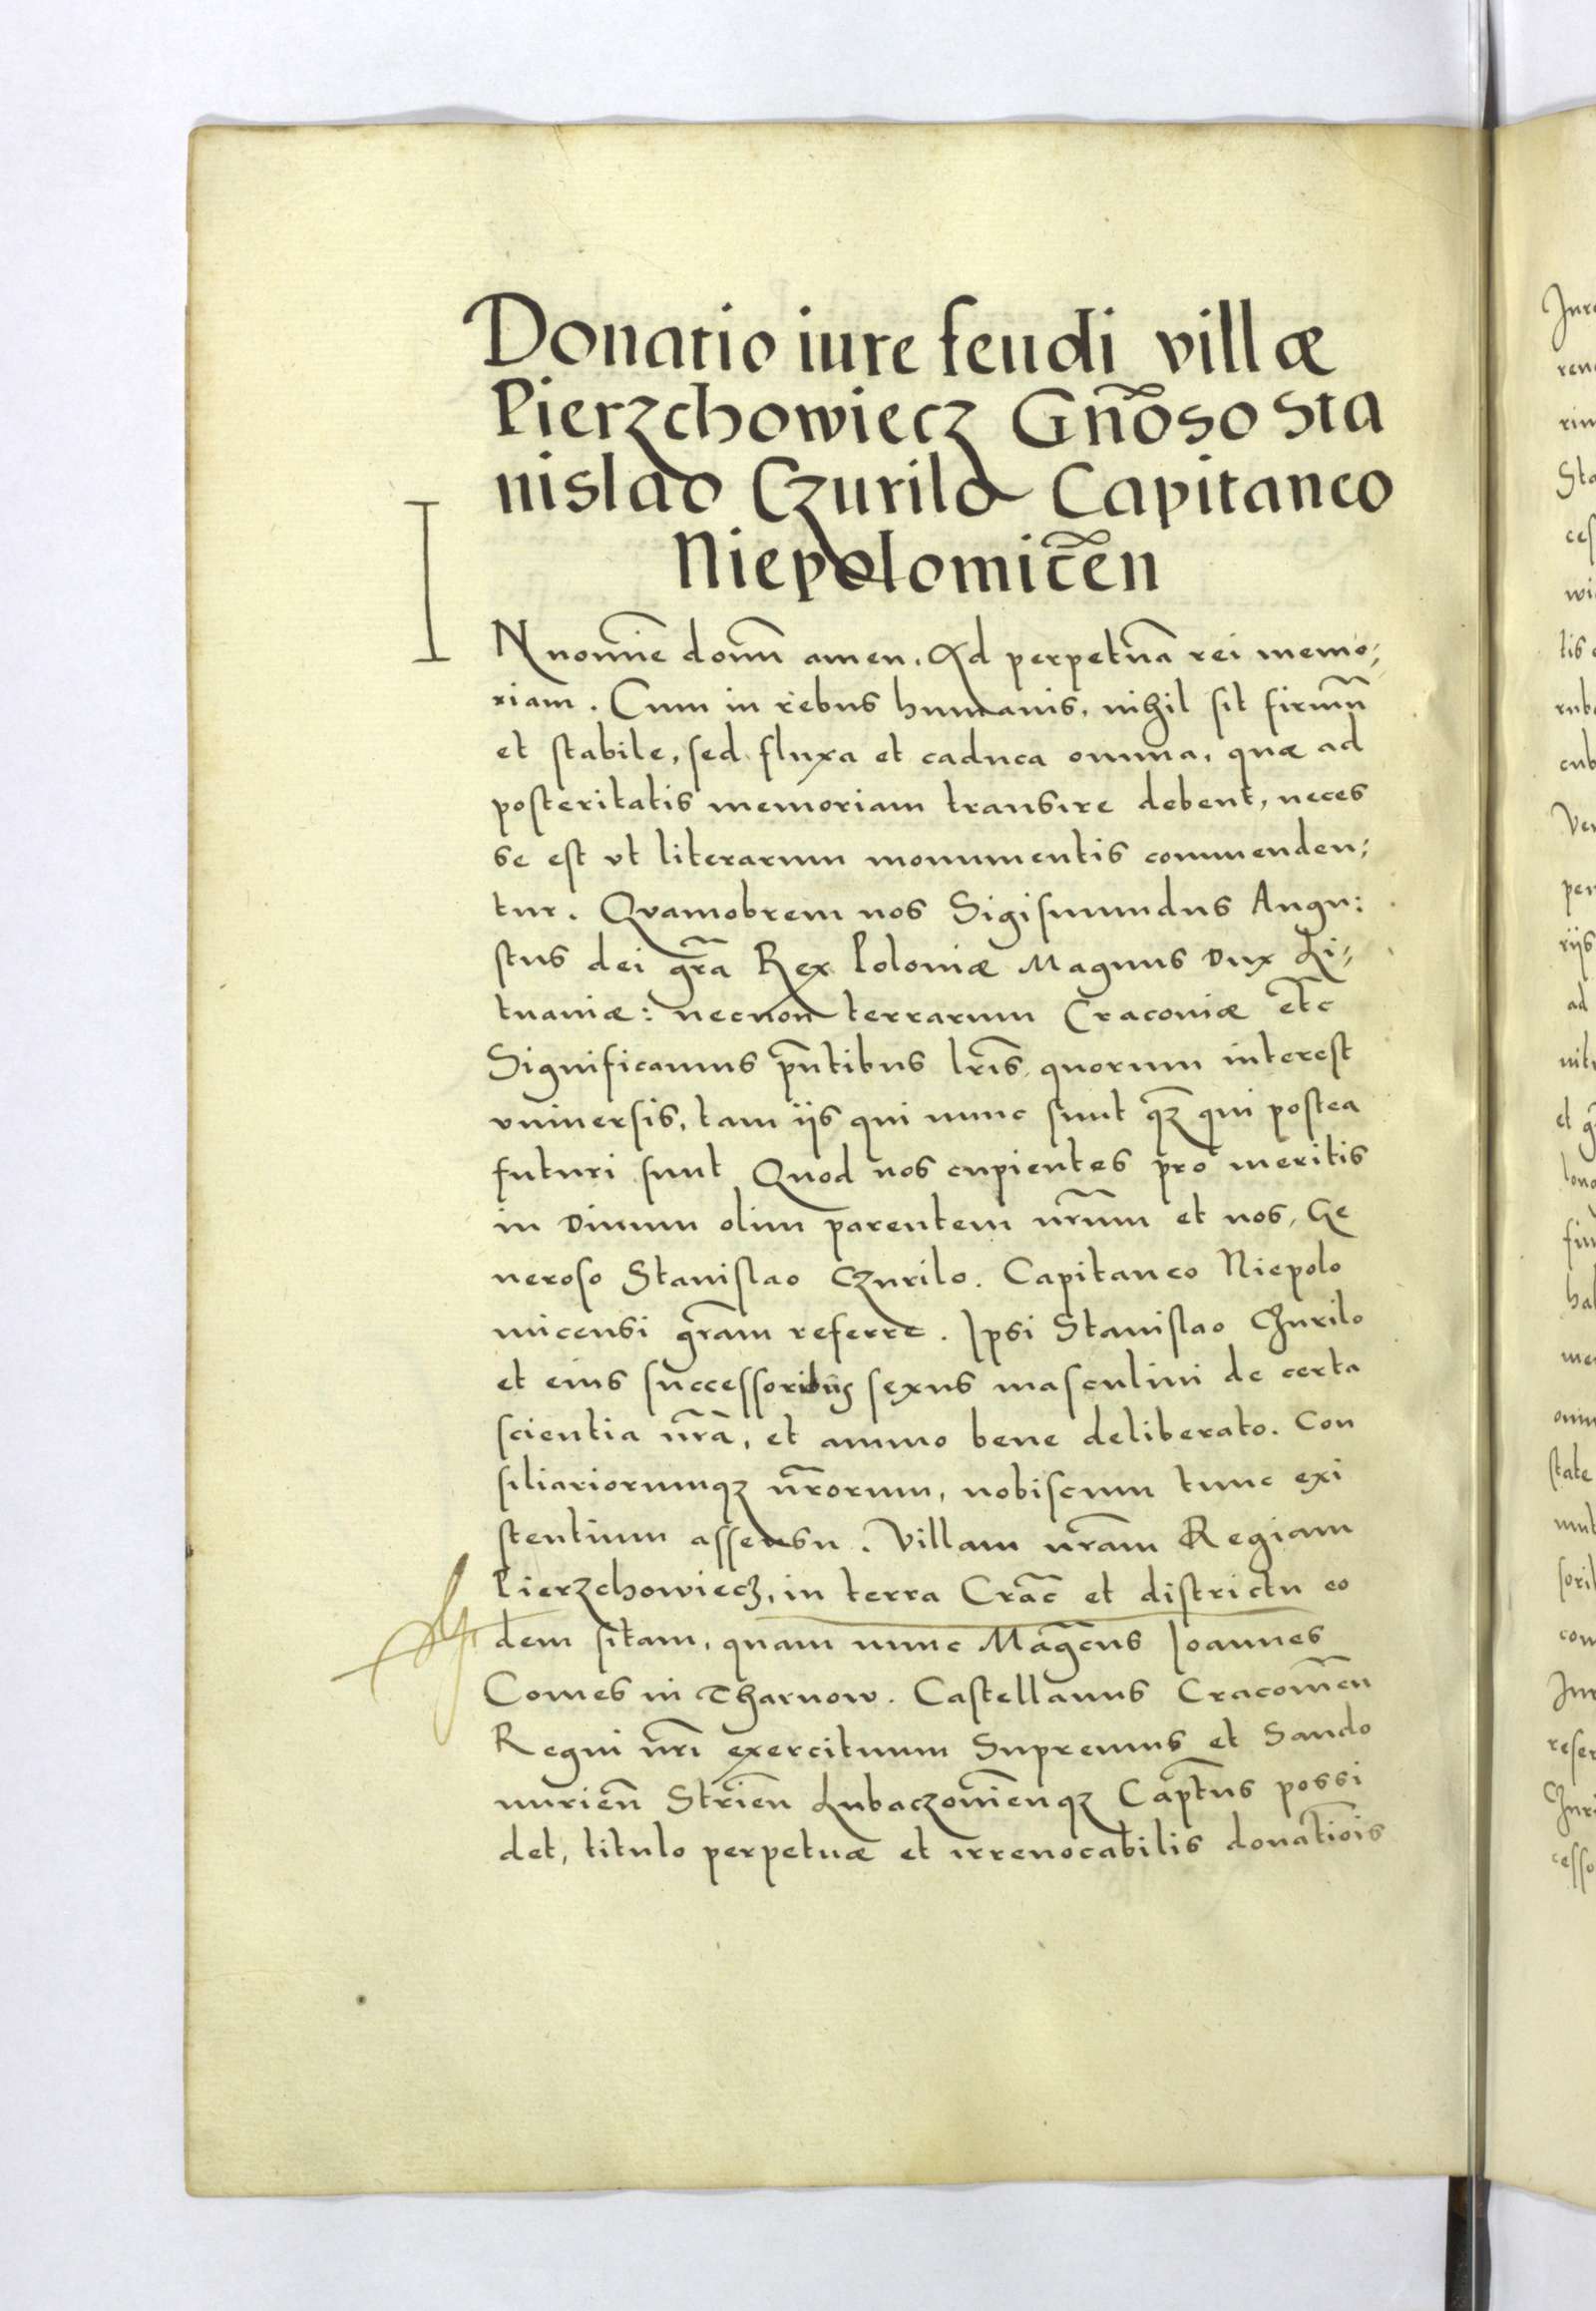 Donatio iure feudi villæ
Pierzchowiecz Gnõso Sta
nislao Czurilo Capitaneo
Niepolomicẽn
IN nomĩe domĩ amen. Ad perpetuã rei memo-
riam. Cum in rebus humanis, nihil sit firmũ
et stabile, sed fluxa et caduca omnia, quæ ad
posteritatis memoriam transire debent, neces
se est vt literarum monumentis commenden-
tur. Quamobrem nos Sigismundus Augu:
stus dei grã Rex Poloniæ Magnus Dux Li-
tuaniæ: necnon terrarum Cracoviæ etc̃
Significamus pñtibus lrĩs, quorum interest
vniuersis, tam ijs qui nunc sunt qz̃ qui postea
futuri sunt Quod nos cupientes pro meritis
in Diuum olim parentem nrũm et nos, Ge
neroso Stanislao Czurilo. Capitaneo Niepolo
micensi grãm referre. Ipsi Stanislao Churilo
et eius successoribus sexus masculini de certa
scientia nrã, et animo bene deliberato. Con
siliariorumqz nr̃orum, nobiscum tunc exi
stentium assensu. Villam nrãm Regiam
Pierzchowiecz, in terra Crac̃ et districtu eo
dem sitam, quam nunc Magc̃us Ioannes
Comes in Tharnow. Castellanus Cracovien̄
Regni nrĩ exercituum Supremus et Sando
miriẽn Striẽn Lubaczoviẽnqz Capt̃us possi
det, titulo perpetuæ et irreuocabilis donatiõis